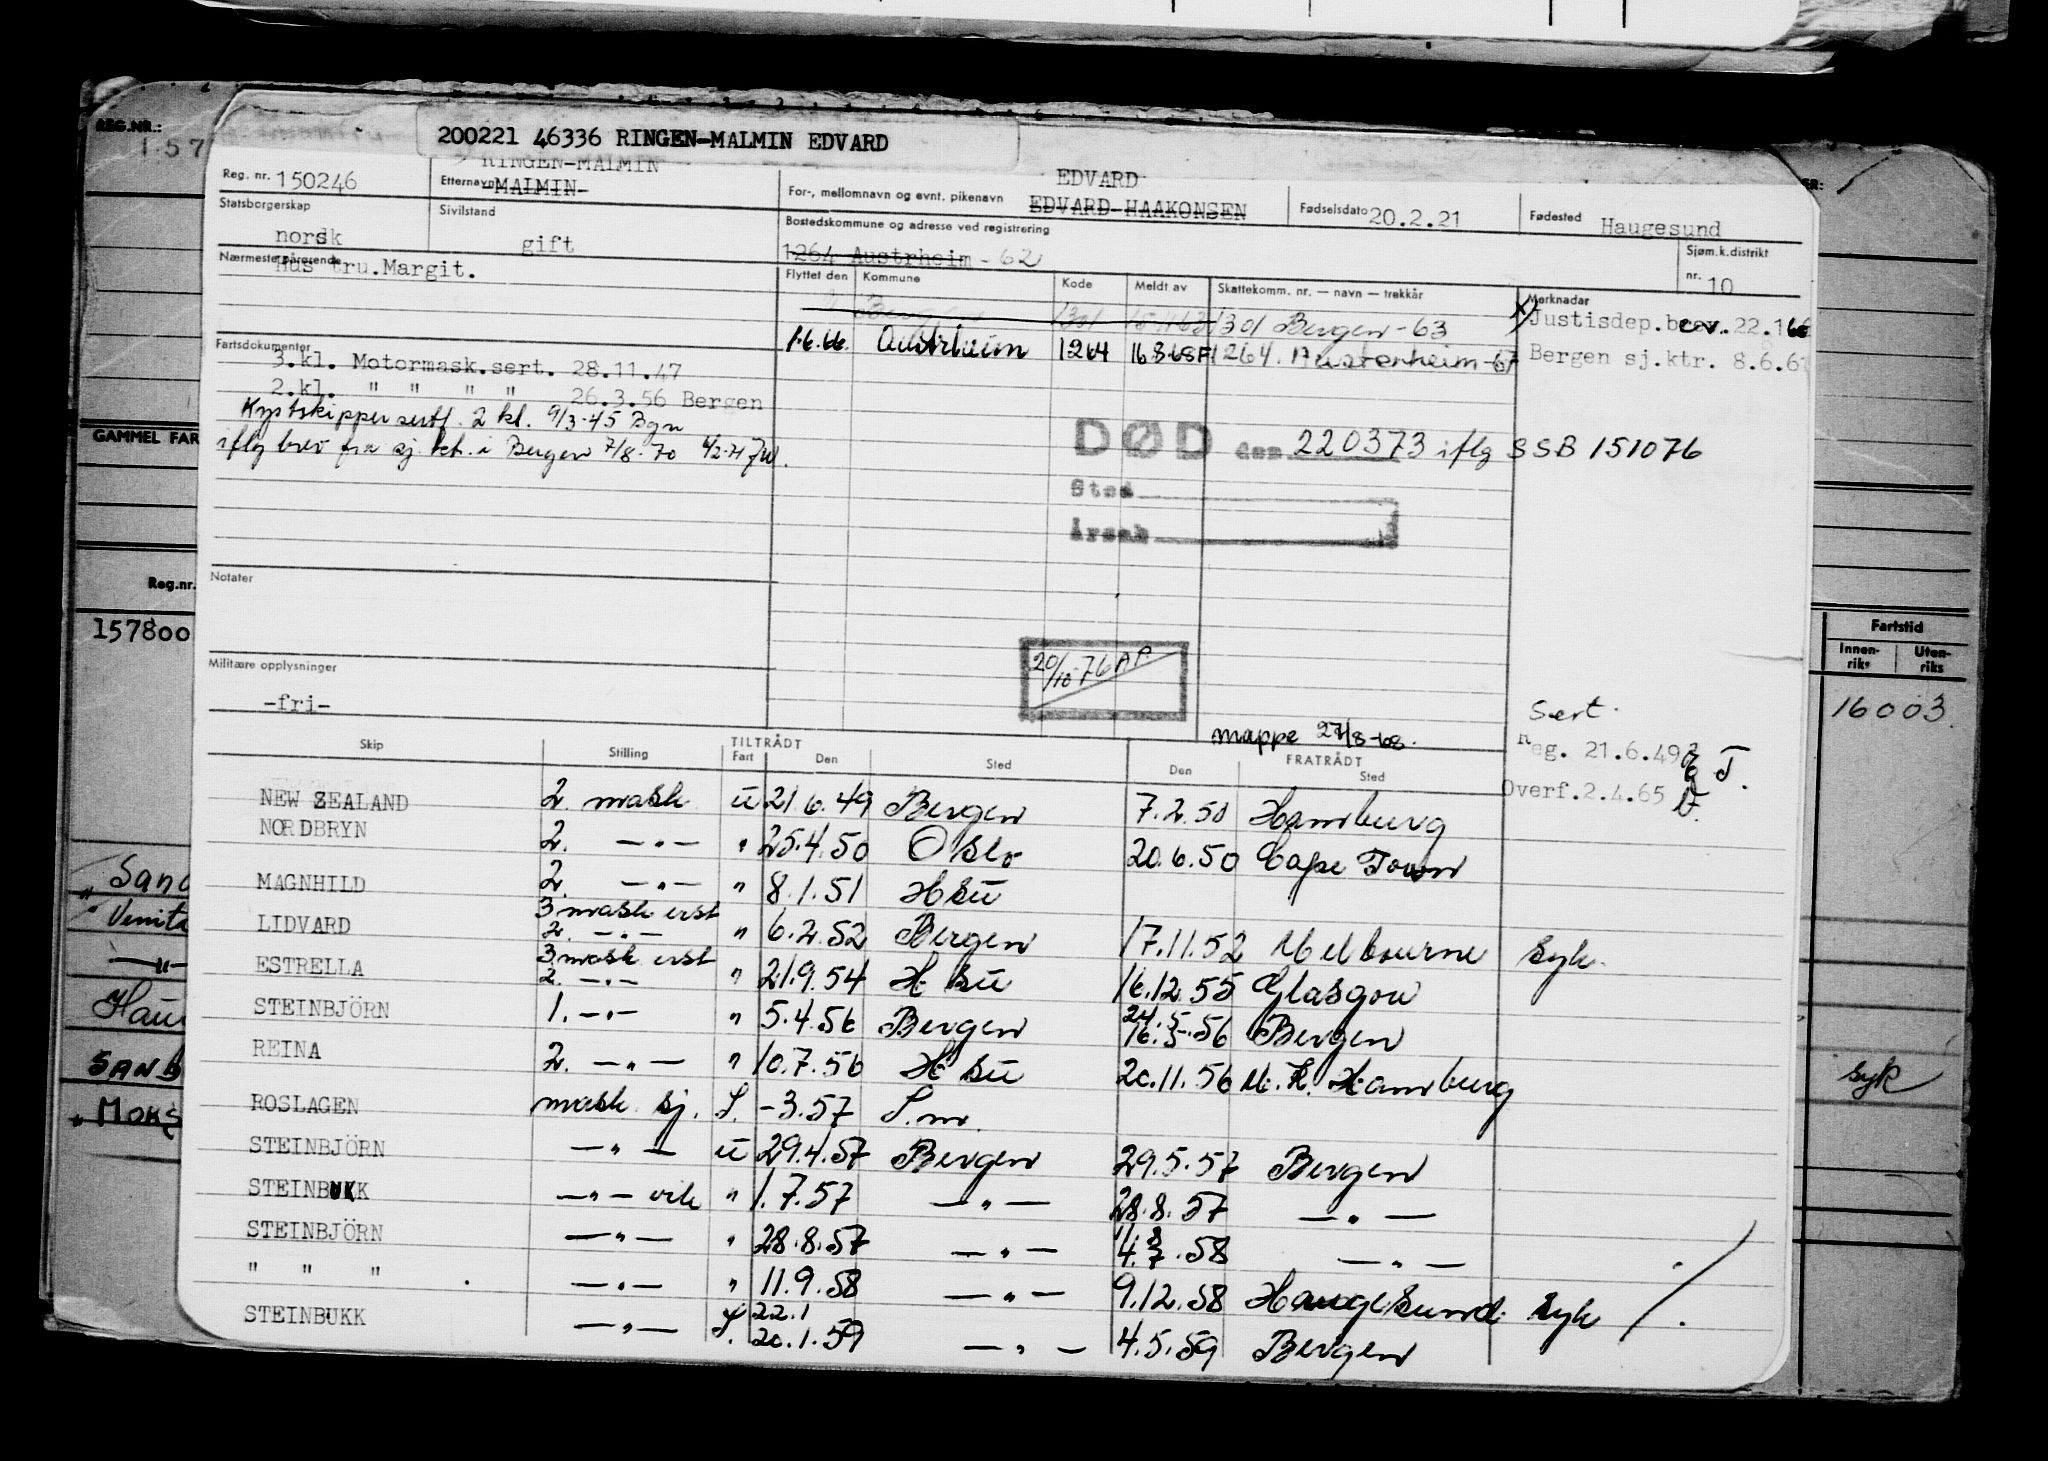 REG.NR.:
157
200221 46336 RINGEN-MALMIN EDVARD
RINGEN-MALMIN
Reg. nr. 150246
Etternavn -MALMIN-
For-, mellomnavn og evnt. pikenavn EDVARD
EDVARD HAAKONSEN
Fødselsdato 20.2.21
Fødested Haugesund
Statsborgerskap norsk
Sivilstand gift
Bostedskommune og adresse ved registrering
1264 Austrheim - 62
Sjøm.k.distrikt nr. 10
Nærmeste pårørende
Hustru. Margit.
Flyttet den Kommune Kode Meldt av Skattekomm. nr. — navn — trekkår
Bergen 1301 1301 Bergen -63
1.6.66. Austrheim 1264 16868F 1264. Austerheim -67
Merknader
x/ Justisdep.brev. 22.1 66
Bergen sj.ktr. 8.6.6
Fartsdokumenter
3.kl. Motormask.sert. 28.11.47
2.kl. " " " " 26.3.56 Bergen
Kystskippersert. 2 kl. 9/3-45 Bgn
iflg brev fra sj. ktr. i Bergen 7/8-70
DØD den 220373 iflg SSB 151076
Sted
Årsak
GAMMEL FAR
Reg.nr.
157800
Notater
Militære opplysninger
-fri-
20/10 76 AP
mappe 27/8-68.
Sert.
Reg. 21.6.49 T.
Overf.2.4.65
Fartstid
Innenriks Utenriks
16003
Skip Stilling TILTRÅDT Fart Den Sted FRATRÅDT Den Sted
NEW ZEALAND 2. mask u 21 6.49 Bergen 7.2.50 Hamburg
NORDBRYN 2. —"— " 25.4.50 Oslo 20.6.50 Cape Town
MAGNHILD 2. —"— " 8.1.51 H su
LIDVARD 3 mask erst 2. —"— " 6.2.52 Bergen 17.11.52 Melbourne syk.
ESTRELLA 3 mask erst 2. —"— " 21.9.54 H su 16.12.55 Glasgow
STEINBJÖRN 1. —"— " 5.4.56 Bergen 24.5 16.5.56 Bergen
REINA 2. —"— " 10.7.56 H su 20.11.56 M.K. Hamburg
ROSLAGEN mask sj. S. -3.57 S.m.
STEINBJÖRN —"— u 29.4.57 Bergen 29.5.57 Bergen
STEINBUKK —"— vik " 1.7.57 —"— 28.8.57 —"—
STEINBJÖRN —"— " 28.8.57 —"— 4.7.58 —"—
" " " —"— " 11.9.58 —"— 9.12.58 Haugesund syk
STEINBUKK —"— S. 22.1 20.1.59 —"— 4.5.59 Bergen
Sand
" Venita
—"—
Hau
SAND
" MOKS
syk